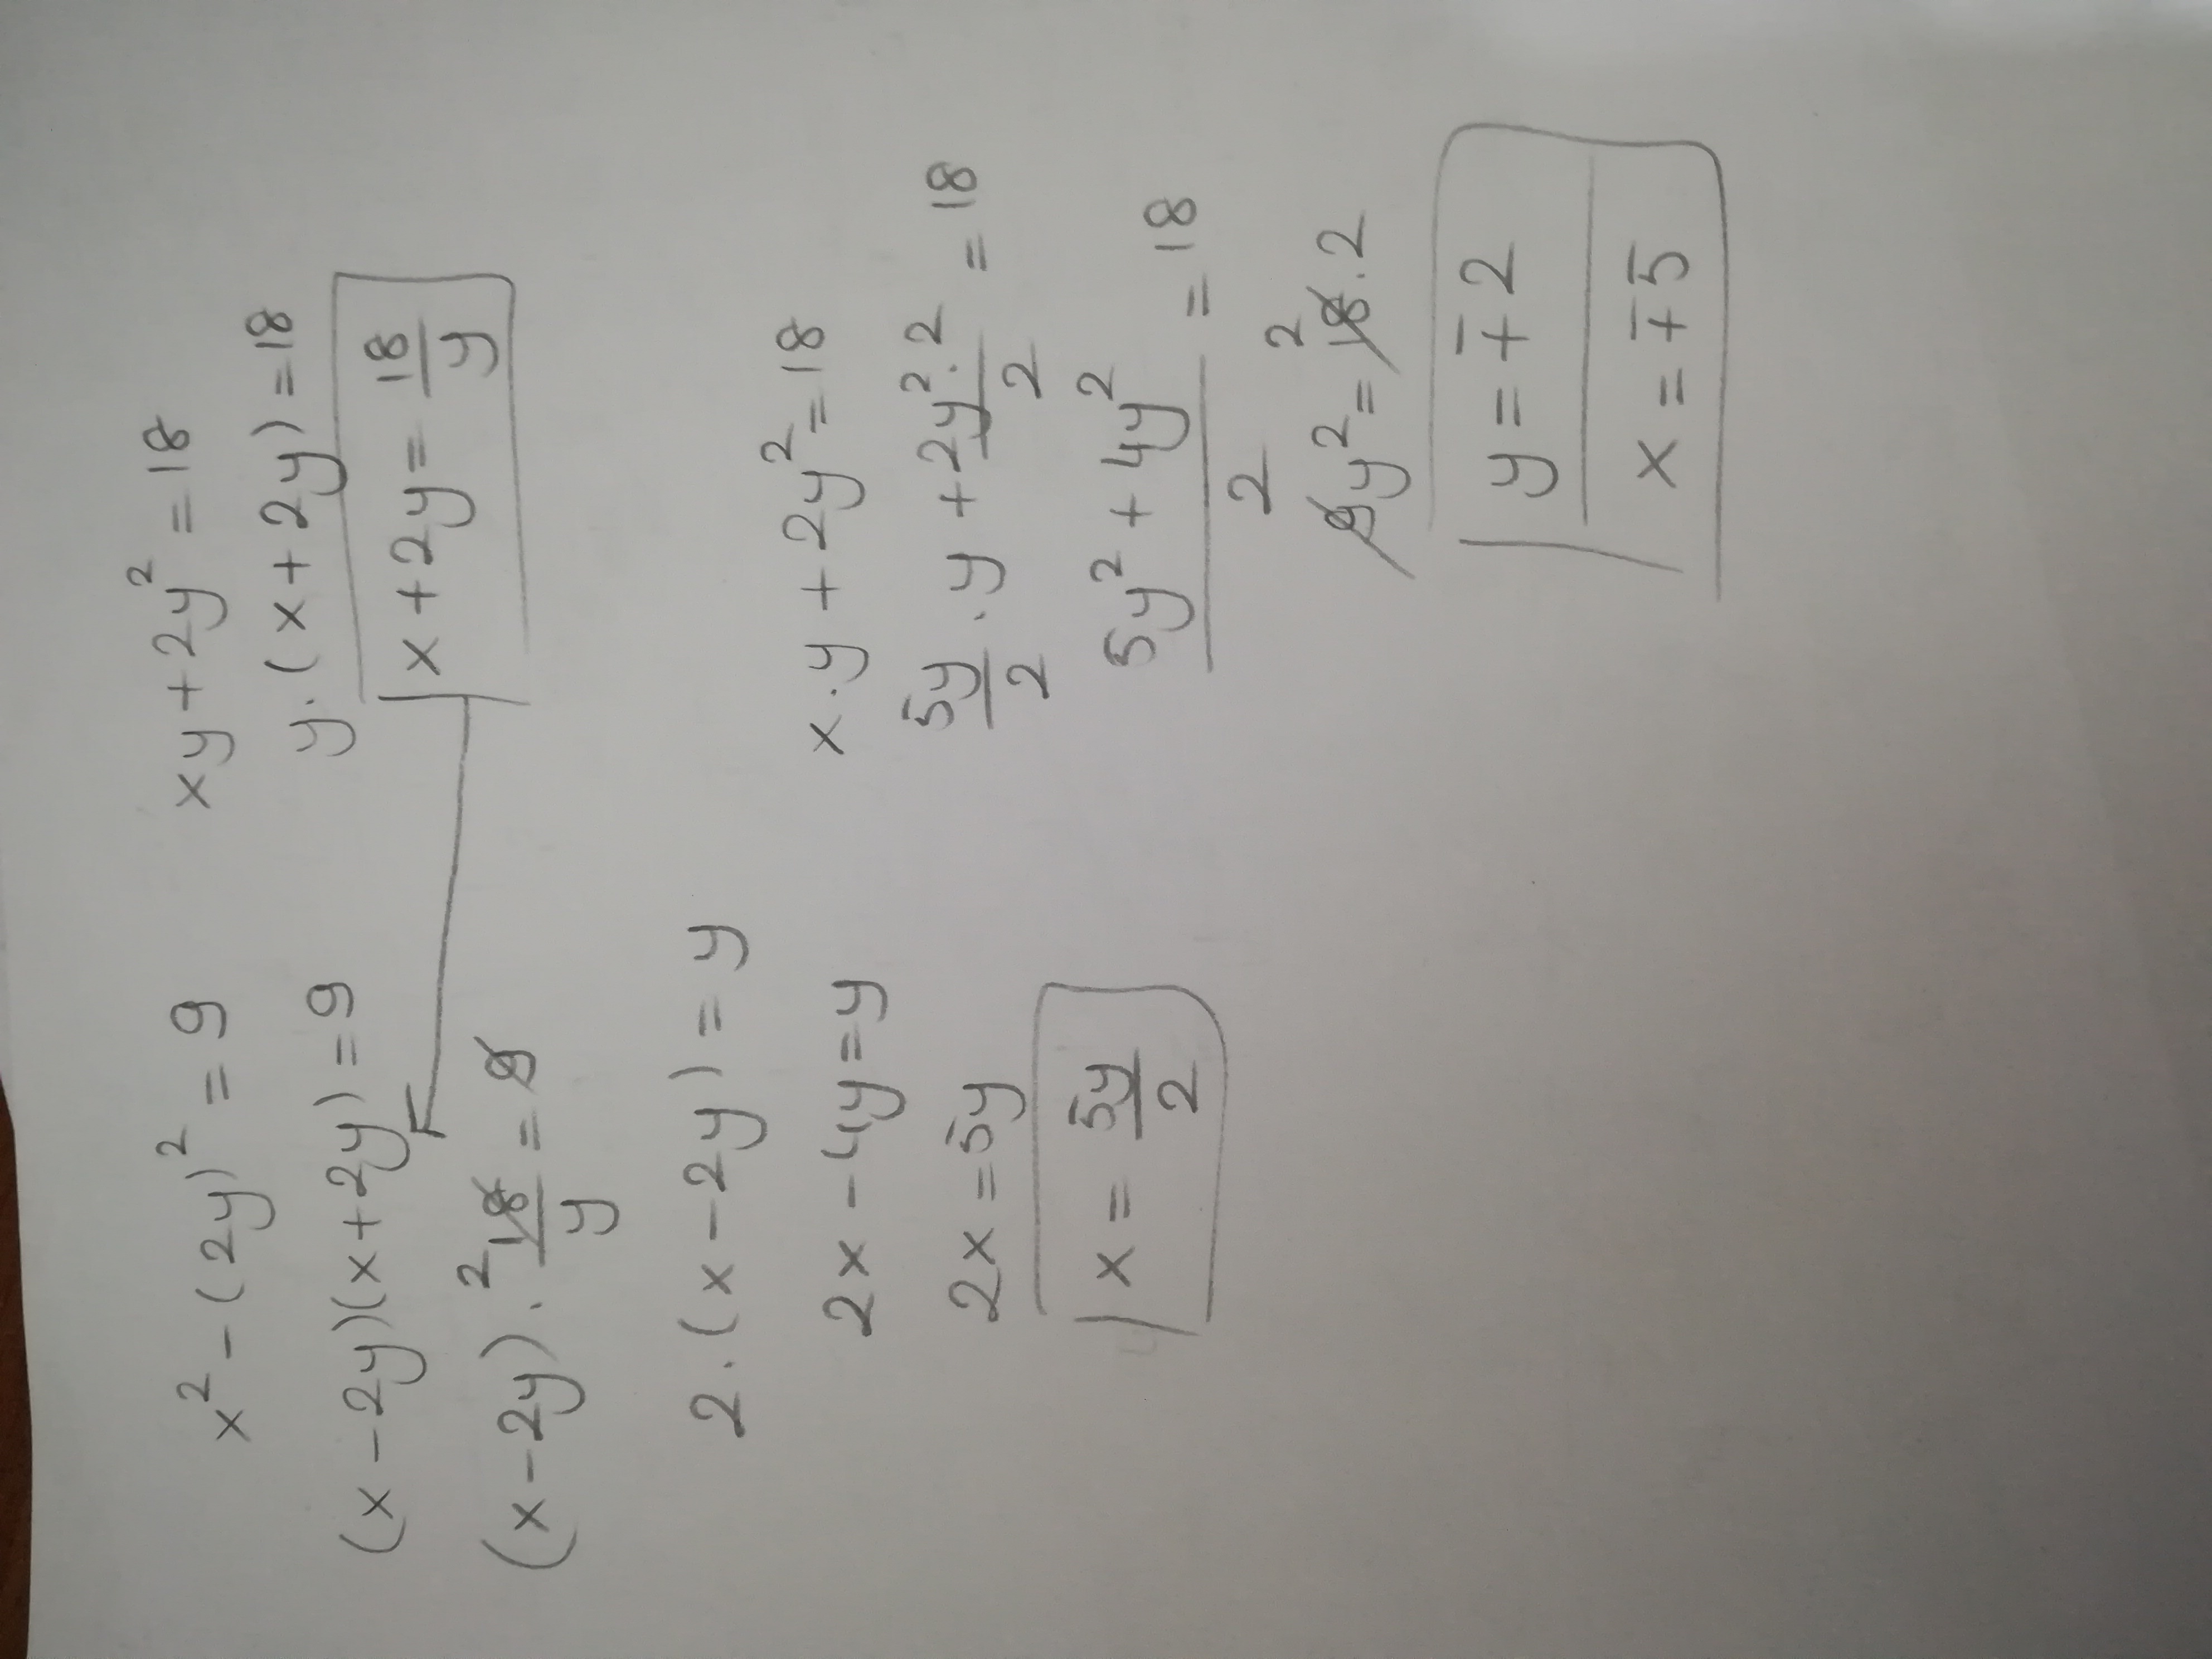 x² - (2y)² = 9
(x - 2y)(x + 2y) = 9
(x - 2y) . ² 18/y = 9
2 . (x - 2y) = y
2x - 4y = y
2x = 5y
x = 5y/2
xy + 2y² = 18
y . (x + 2y) = 18
x + 2y = 18/y
x . y + 2y² = 18
5y/2 . y + 2y² . 2/2 = 18
5y² + 4y²/2 = 18
9y² = 18² . 2
y = ∓2
x = ∓5